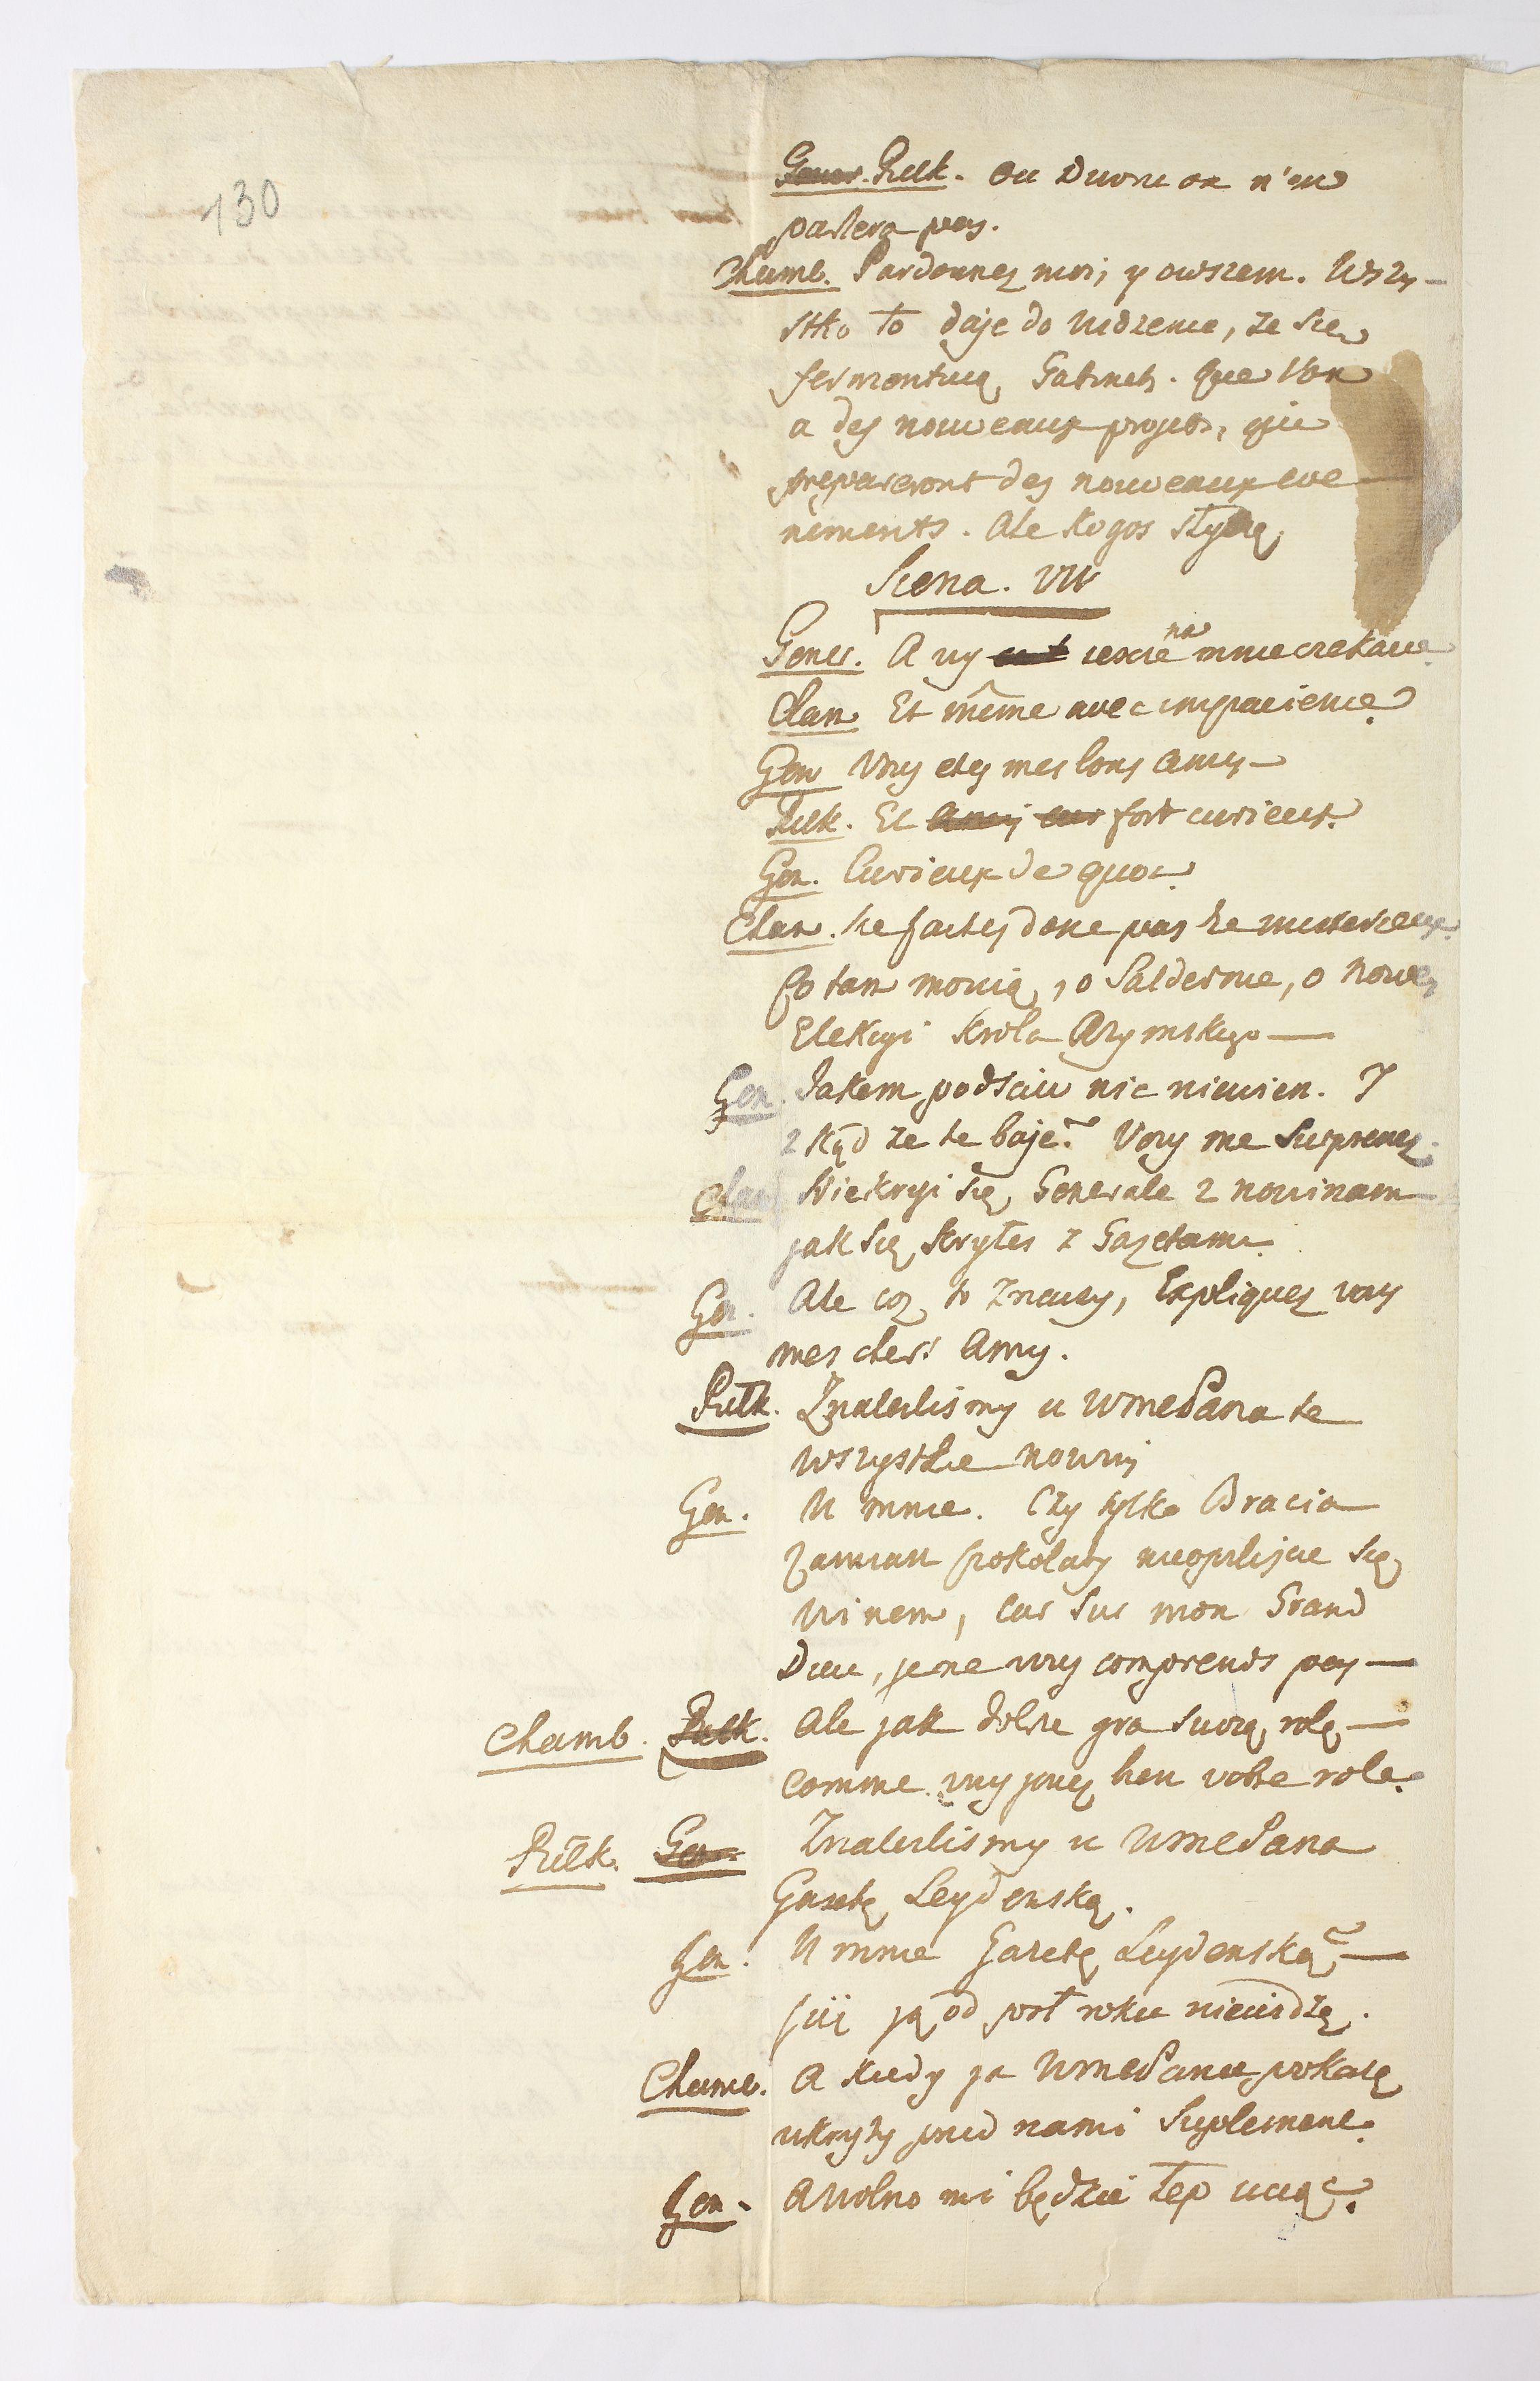 130
Gener. Pułk. Ou Divorce on n'en
parlera pas.
Chamb. Pardonnez moi, y owszem. Wszy-
stko to daje do widzenia, ze się
fermentuią Gabinety. Que l'on
a des nouveaux projets, qui
prepareront des nouveaux eve
nements. Ale kogos słyszę.
Scena. VII
Gener. A wy iescie na mnie czekacie
Cham. Et même avec impacience?
Gen Vous etes mes bons amys —
Pułk. Et fort curieux.
Gen. Curieux de quoi.
Cham. Ne faites donc pas le misterieux.
Co tam mowią, o Saldernie, o nowey
Elekcyi Krola Rzymskiego —
Gen. Jakem podsciw nic niewien. I
zkąd ze te baje? Vous me Surprenez.
Cham Niekryi się Generale z nowinam
jak się skryłes z Gazetami.
Gen. Ale coz to znaczy, Expliquez vous
mes chers Amys.
Pułk. Znalezlismy u WmePana te
wszystkie nowiny
Gen. U mnie. Czy tylko Bracia
zamiast szokolady nieopilisjcie się
winem, car sur mon Grand
Dieu, je ne vous comprends pas —
Chamb. Pułk. Ale jak dobrze gra swoią rolę —
comme vous jouez bien votre role.
Pułk. Gen Znalezlismy u WmePana
Gazetę Leydenską.
Gen. U mnie Gazetę Leydenską? —
ją od puł roku niewidzę.
Chamb. A kiedy ja WmePanu pokażę
ukryty przed nami Suplement.
Gen. A wolno mi będzie łep uciąc.